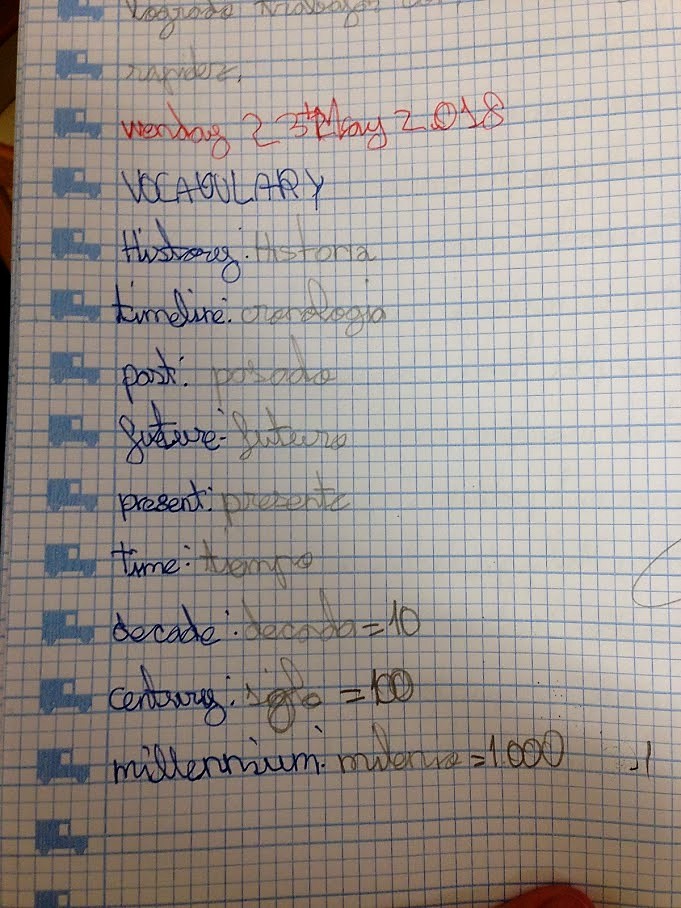 logrado trabajar con
rapidez.
wenday 23th May 2018
VOCABULARY
History: Historia
timeline: cronologia
past: pasado
future- futuro
present: presente
time: tiempo
decade: decada = 10
century: siglo = 100
millennium: milenio = 1.000